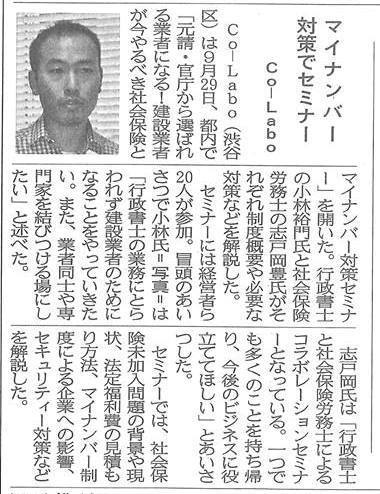 マイナンバー
対策でセミナー
Co―Labo
Co―Labo（渋谷
区）は9月29日、都内で
「元請・官庁から選ばれ
る業者になる！建設業者
が今やるべき社会保険と
マイナンバー対策セミナ
ー」を開いた。行政書士
の小林裕門氏と社会保険
労務士の志戸岡豊氏がそ
れぞれ制度概要や必要な
対策などを解説した。
セミナーには経営者ら
20人が参加。冒頭のあい
さつで小林氏＝写真＝は
「行政書士の業務にとら
われず建設業者のために
なることをやっていきた
い。また、業者同士や専
門家を結びつける場にし
たい」と述べた。
志戸岡氏は「行政書士
と社会保険労務士による
コラボレーションセミナ
ーとなっている。一つで
も多くのことを持ち帰
り、今後のビジネスに役
立ててほしい」とあいさ
つした。
セミナーでは、社会保
険未加入問題の背景や現
状、法定福利費の見積も
り方法、マイナンバー制
度による企業への影響、
セキュリティー対策など
を解説した。